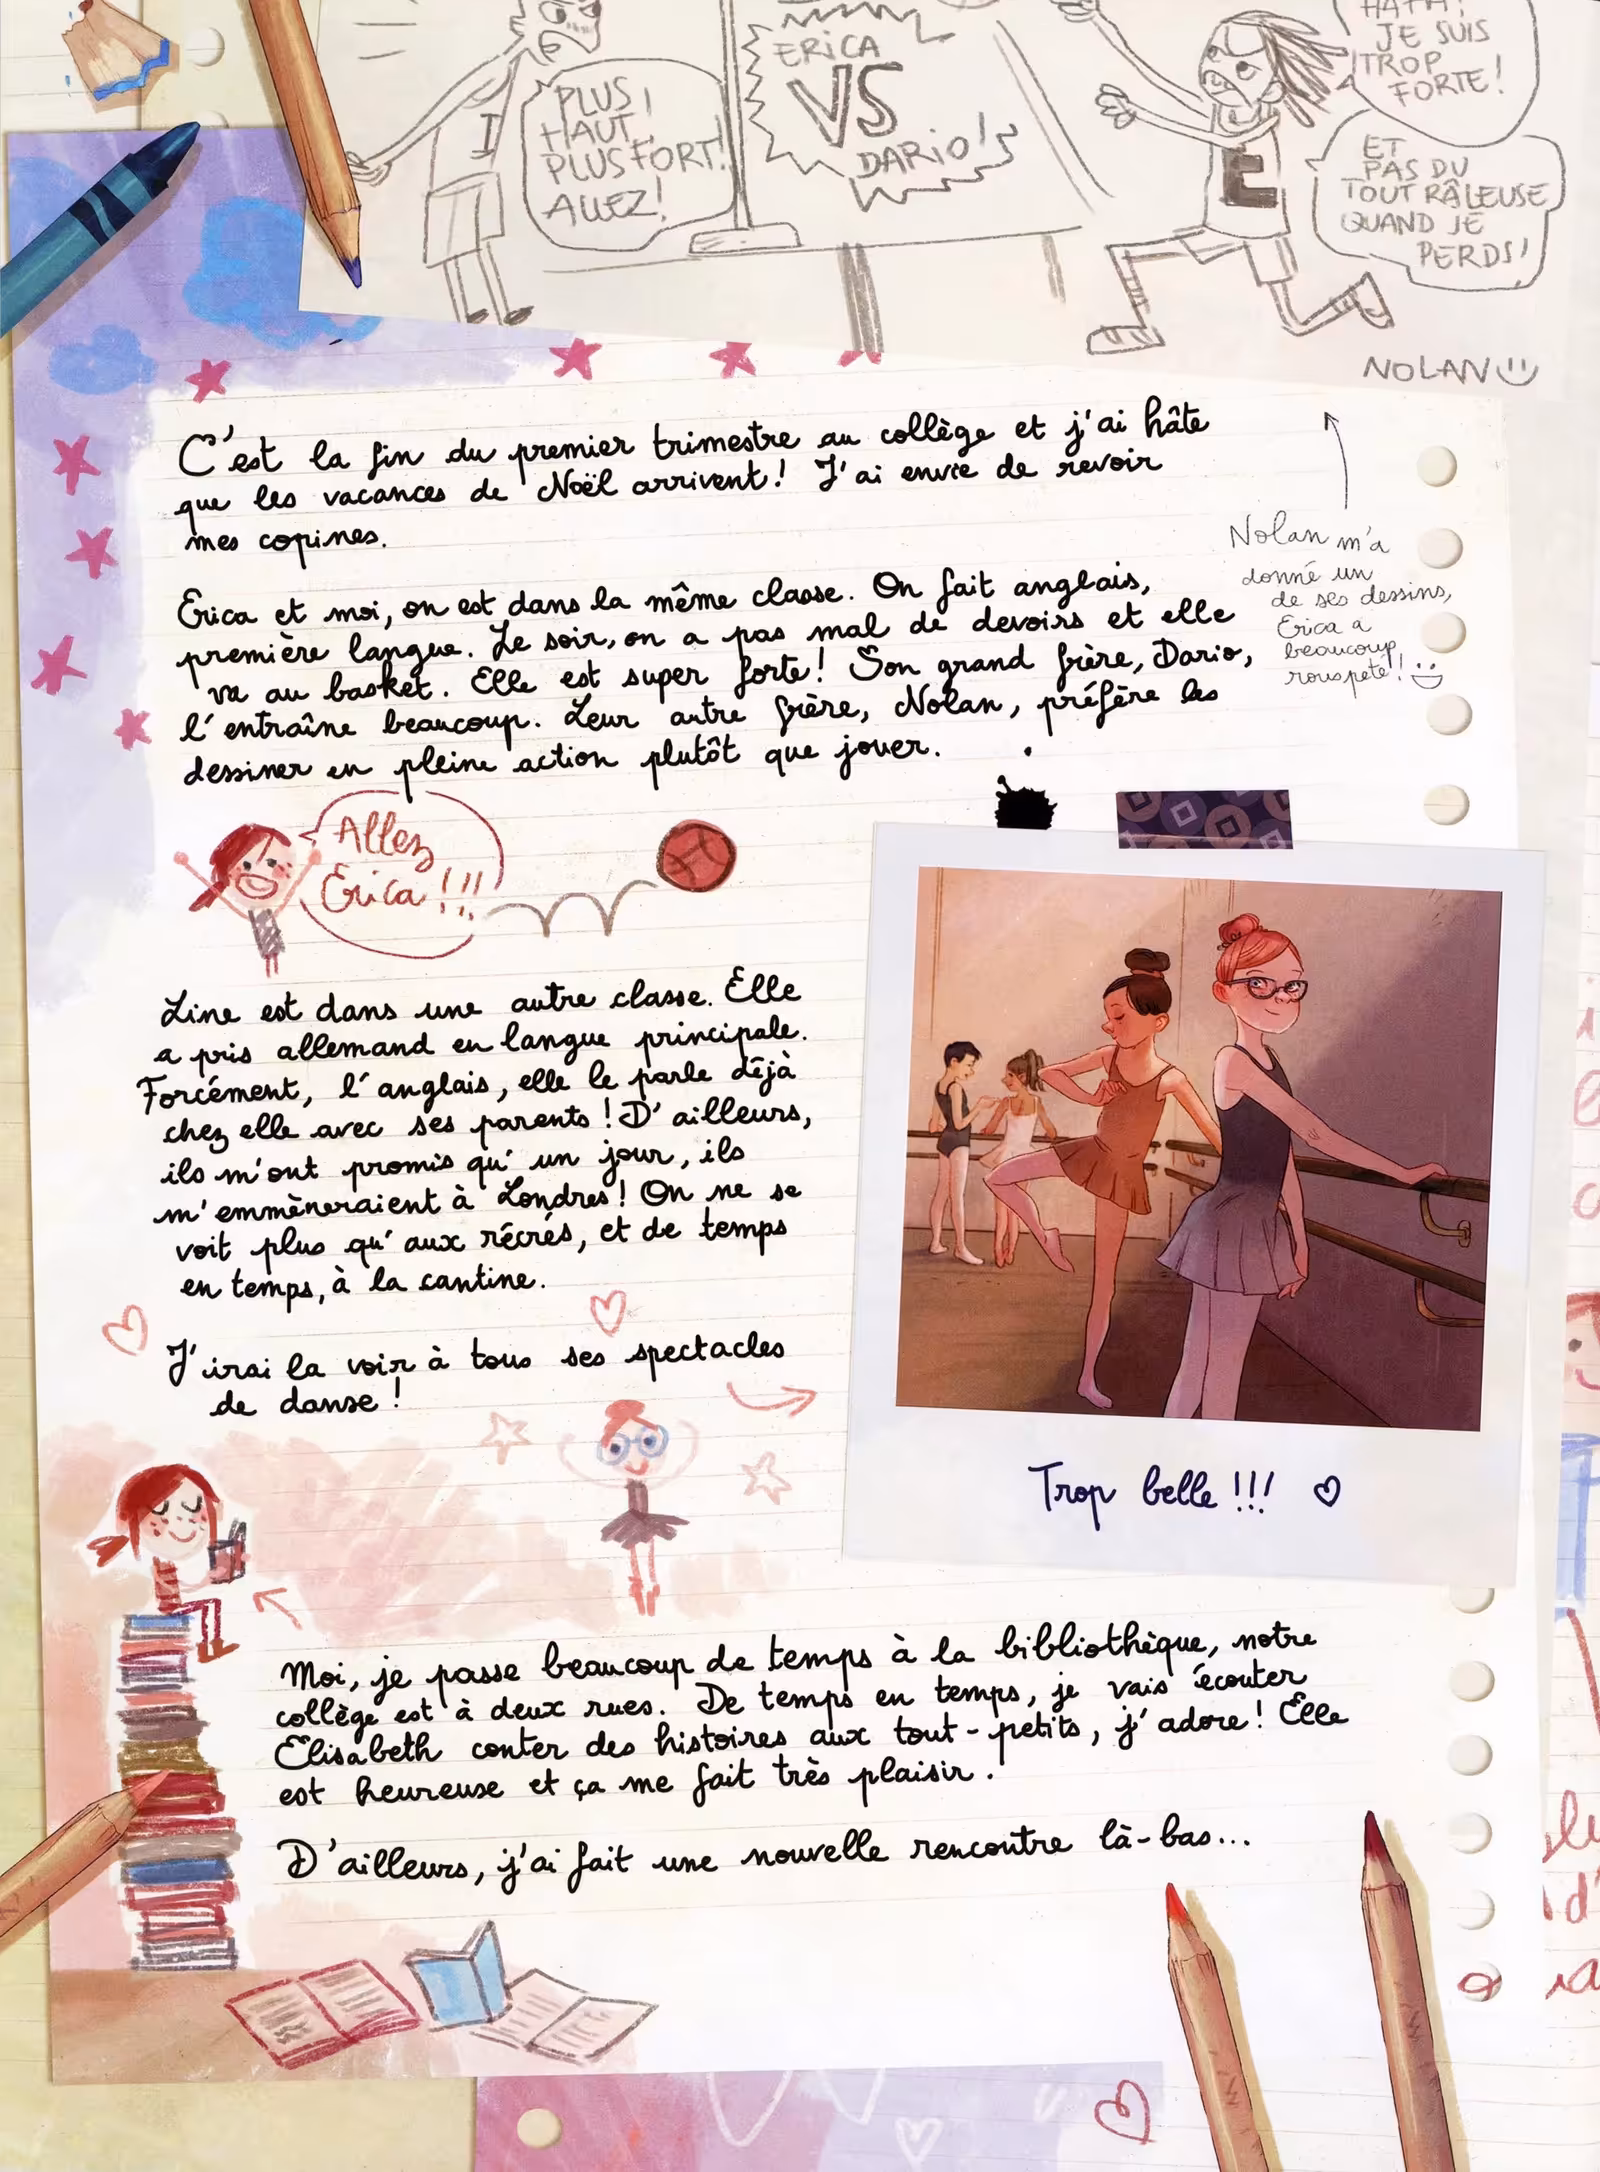 ERICA
VS
DARIO!
PLUS
HAUT,
PLUS FORT!
ALLEZ!
HAHA!
JE SUIS
TROP
FORTE!
ET
PAS DU
TOUT RÂLEUSE
QUAND JE
PERDS!
I
E
NOLAN
C'est la fin du premier trimestre au collège et j'ai hâte
que les vacances de Noël arrivent! J'ai envie de revoir
mes copines.
Nolan m'a
donné un
de ses dessins,
Erica a
beaucoup
rouspété!
Erica et moi, on est dans la même classe. On fait anglais,
première langue. Le soir, on a pas mal de devoirs et elle
va au basket. Elle est super forte! Son grand frère, Dario,
l'entraîne beaucoup. Leur autre frère, Nolan, préfère les
dessiner en pleine action plutôt que jouer.
Allez
Erica!!!
Line est dans une autre classe. Elle
a pris allemand en langue principale.
Forcément, l'anglais, elle le parle déjà
chez elle avec ses parents! D'ailleurs,
ils m'ont promis qu'un jour, ils
m'emmèneraient à Londres! On ne se
voit plus qu'aux récrés, et de temps
en temps, à la cantine.
J'irai la voir à tous ses spectacles
de danse!
Trop belle!!!
Moi, je passe beaucoup de temps à la bibliothèque, notre
collège est à deux rues. De temps en temps, je vais écouter
Élisabeth conter des histoires aux tout-petits, j'adore! Elle
est heureuse et ça me fait très plaisir.
D'ailleurs, j'ai fait une nouvelle rencontre là-bas...